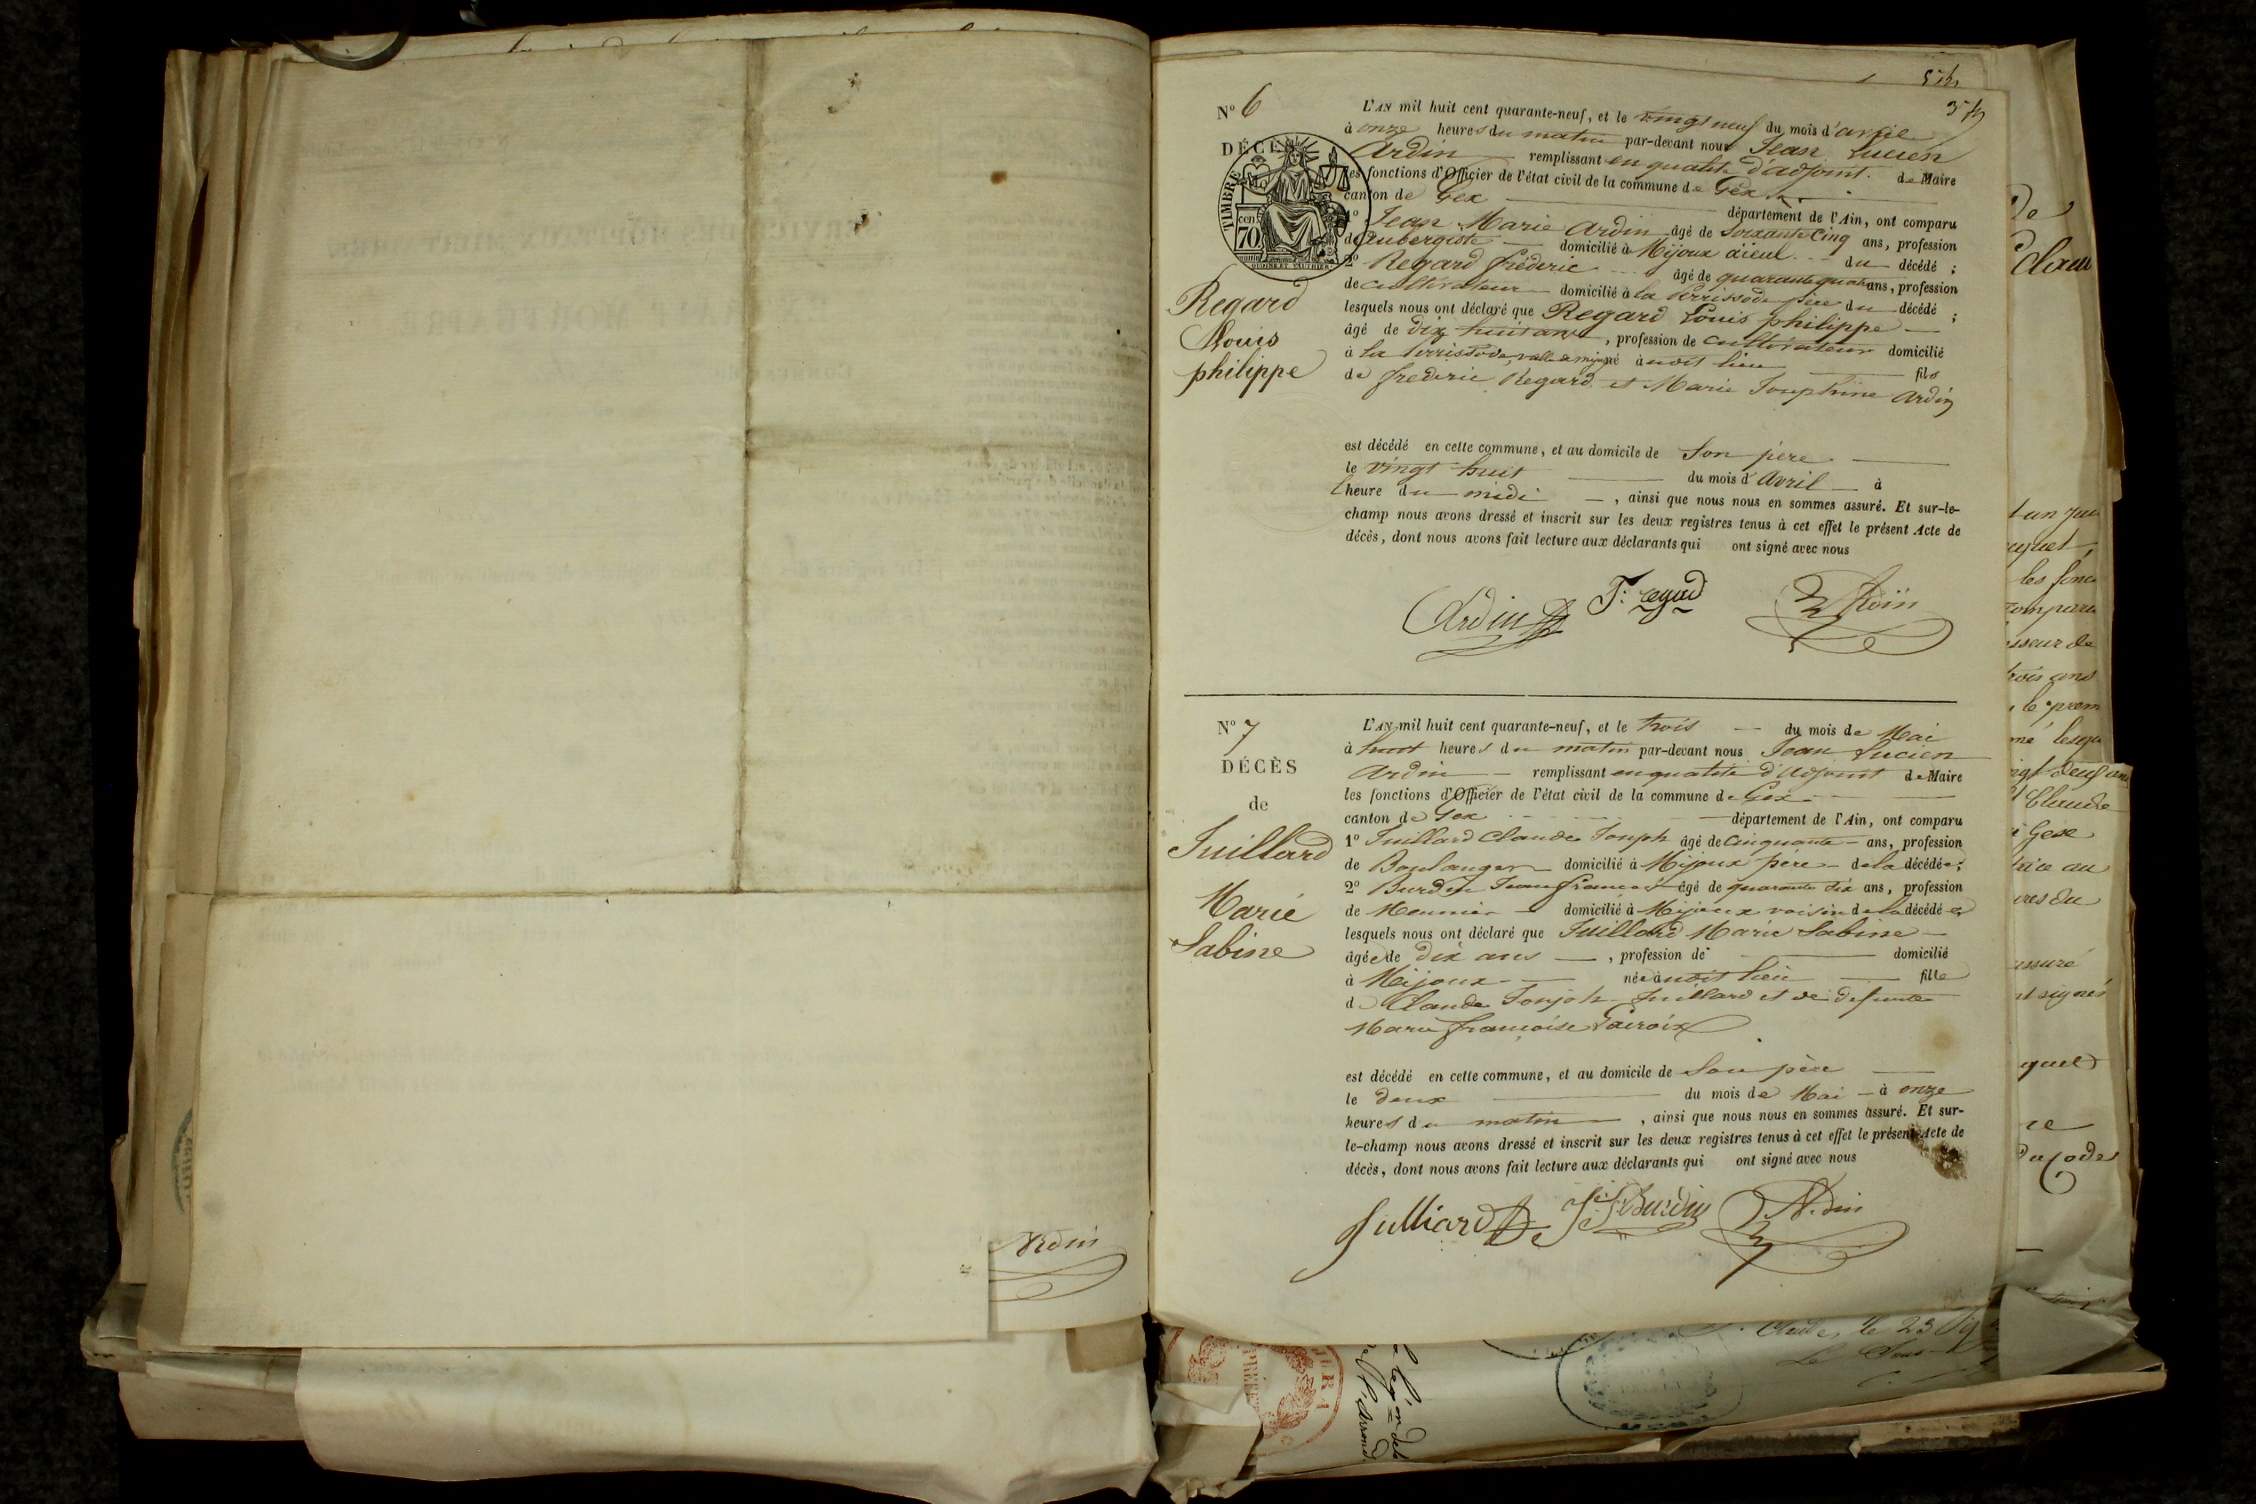 N° 6
L'AN mil huit cent quarante-neuf, et le vingt neuf du mois d'avril
à onze heures du matin par-devant nous Jean Lucien
DÉCÈS
Ardin remplissant en qualité d'adjoint de Maire
les fonctions d'Officier de l'état civil de la commune de Gex
canton de Gex département de l'Ain, ont comparu
TIMBRE
cen 70
1° Jean Marie Ardin âgé de soixante cinq ans, profession
d'aubergiste domicilié à Mijoux aïeul du décédé ;
2° Regard fréderic âgé de quarante quatre ans, profession
Regard
Louis
philippe
de cultivateur domicilié à la père du décédé ;
lesquels nous ont déclaré que Regard Louis philippe
âgé de dix huit ans, profession de cultivateur domicilié
à la né audit lieu fils
de frederic Regard et Marie Josephine Ardin
est décédé en cette commune, et au domicile de son père
le vingt huit du mois d'avril à
l'heure du midi, ainsi que nous nous en sommes assuré. Et sur-le-
champ nous avons dressé et inscrit sur les deux registres tenus à cet effet le présent Acte de
décès, dont nous avons fait lecture aux déclarants qui ont signé avec nous
Ardin F. regard
N° 7
DÉCÈS
de
Juillard
Marie
Sabine
L'AN mil huit cent quarante-neuf, et le trois du mois de Mai
à huit heures du matin par-devant nous Jean Lucien
Ardin remplissant en qualité d'adjoint de Maire
les fonctions d'Officier de l'état civil de la commune de Gex
canton de Gex département de l'Ain, ont comparu
1° Juillard Claude Joseph âgé de cinquante ans, profession
de Boulanger domicilié à Mijoux père de la décédée ;
2° Burdin Jean françois âgé de quarante dix ans, profession
de Meunier domicilié à Mijoux voisin de la décédée
lesquels nous ont déclaré que Juillard Marie Sabine
âgée de dix ans, profession de domicilié
à Mijoux née audit lieu fille
de Claude Joseph Juillard et de défunte
Marie françoise Lacroix
est décédé en cette commune, et au domicile de son père
le deux du mois de Mai à onze
heures du matin, ainsi que nous nous en sommes assuré. Et sur-
le-champ nous avons dressé et inscrit sur les deux registres tenus à cet effet le présent Acte de
décès, dont nous avons fait lecture aux déclarants qui ont signé avec nous
Julliard J. f. Burdin Ardin
Ardin